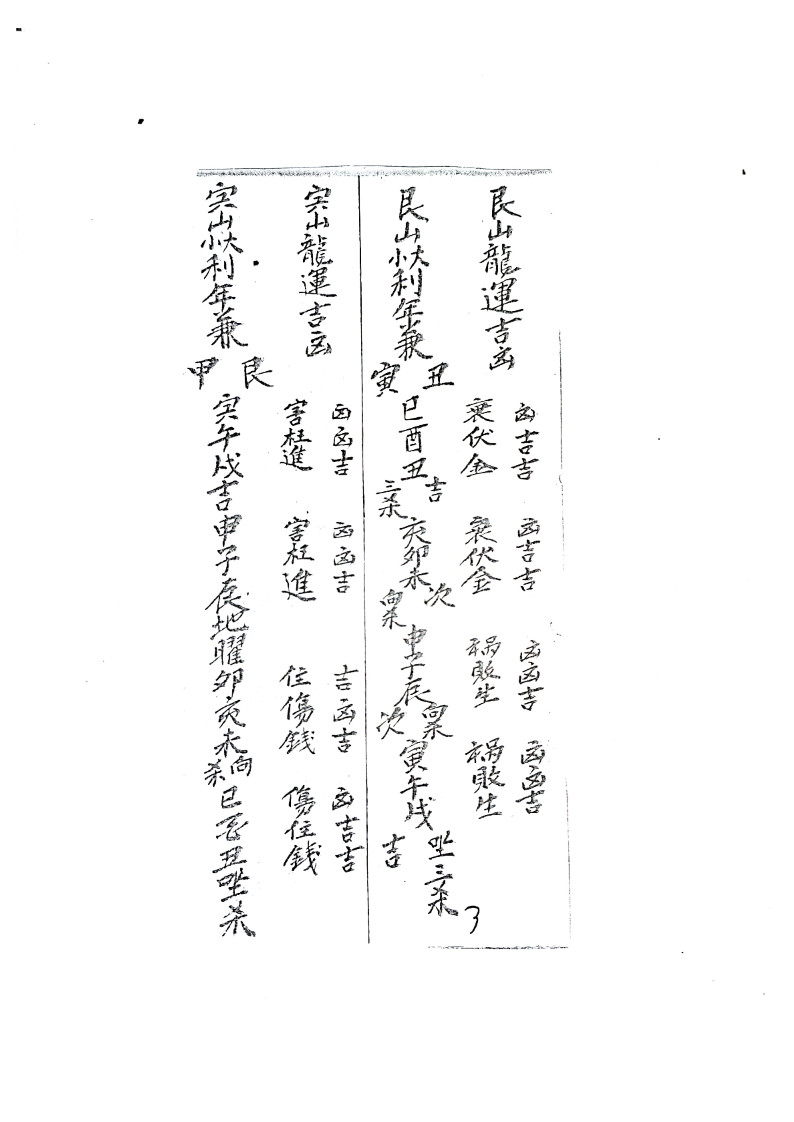 艮山龍運吉凶
凶吉吉
衰伏金
凶吉吉
衰伏金
凶凶吉
禍敗生
凶凶吉
禍敗生
艮山大小利年兼
丑
寅
巳酉丑
吉
三杀
亥卯未
次
向杀
申子辰
向杀
次
寅午戌
坐三杀
吉
3
寅山龍運吉凶
凶凶吉
害枉進
凶凶吉
害枉進
吉凶吉
住傷錢
凶吉吉
傷住錢
寅山大小利年兼
艮
甲
寅午戌吉申子辰地曜卯亥未
向
杀
巳酉丑坐杀